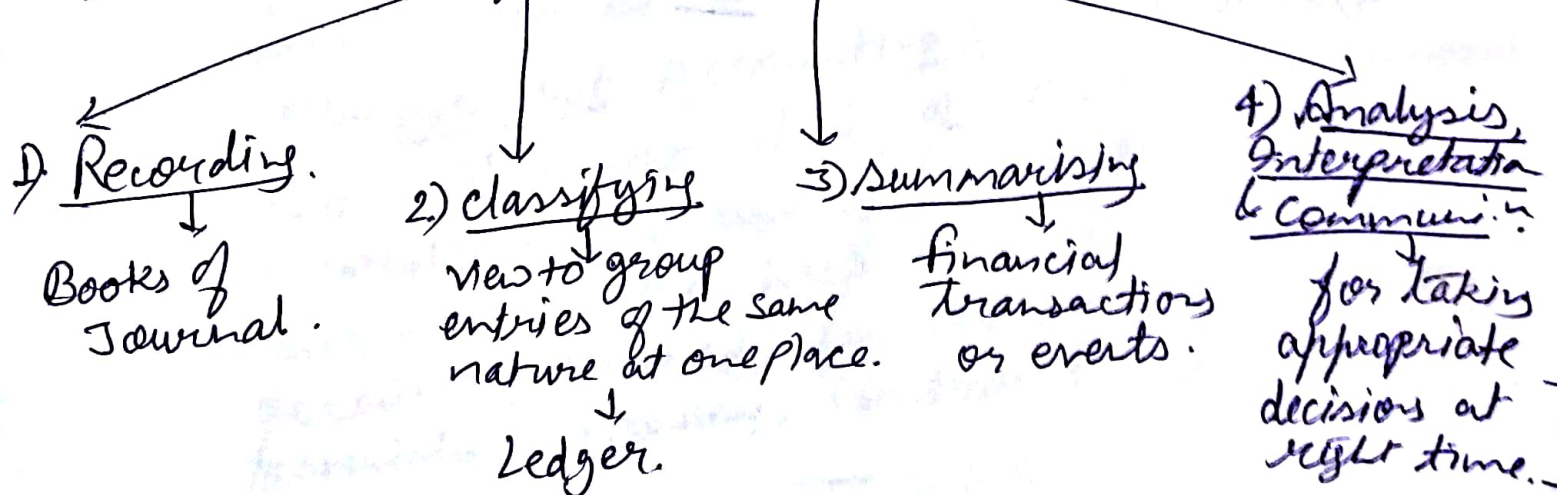 1) Recording.
Books of
Journal.
2) classifying
view to group
entries of the same
nature at one place.
Ledger.
3) summarising
financial
transactions
or events.
4) Analysis,
Interpretation
& Communi..n
for taking
appropriate
decisions at
right time.